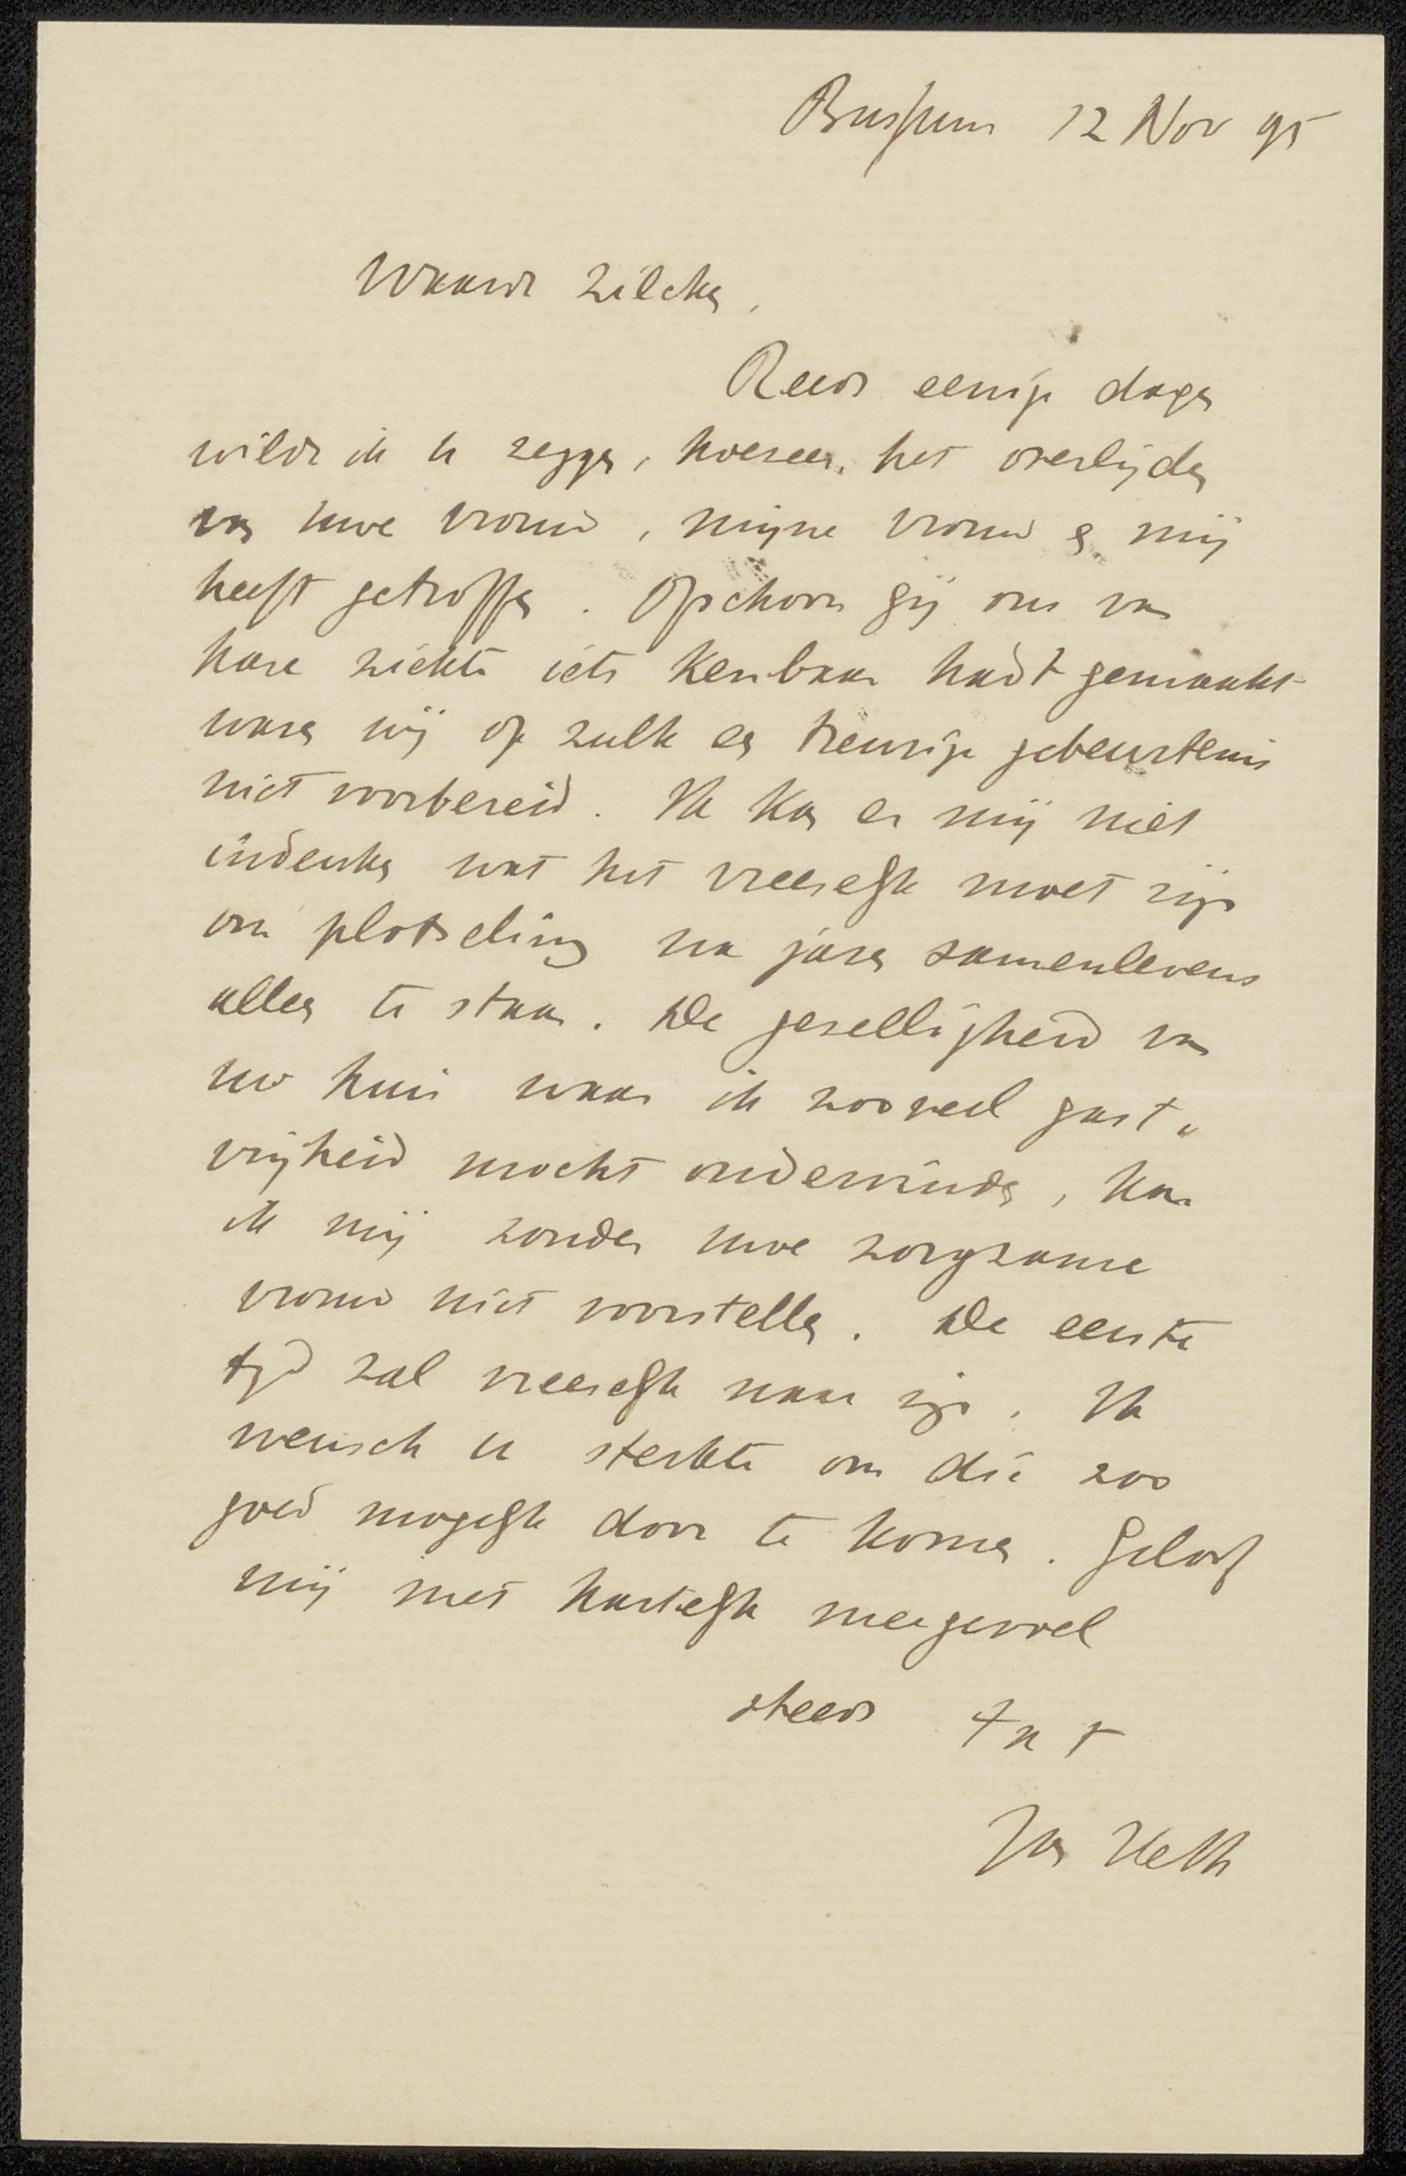 Bussum 12 Nov 95
Waarde Zilcken,
Reeds eenige dagen
wilde ik U zeggen, hoezeer het overlijden
van Uwe vrouw, mijne vrouw en mij
heeft getroffen. Ofschoon gij ons van
hare ziekte iets kenbaar hadt gemaakt
waren wij op zulk een treurige gebeurtenis
niet voorbereid. Ik kan er mij niet
indenken wat het vreeselijk moet zijn
om plotseling na jaren samenlevens
alleen te staan. De gezelligheid van
uw huis waar ik zooveel gast-
vrijheid mocht ondervinden, kan
ik mij zonder Uwe zorgzame
vrouw niet voorstellen. De eerste
tijd zal vreeselijk naar zijn. Ik
wensch U sterkte om die zoo
goed mogelijk door te komen. Geloof
mij met hartelijk meegevoel
steeds t n t
Jan Veth